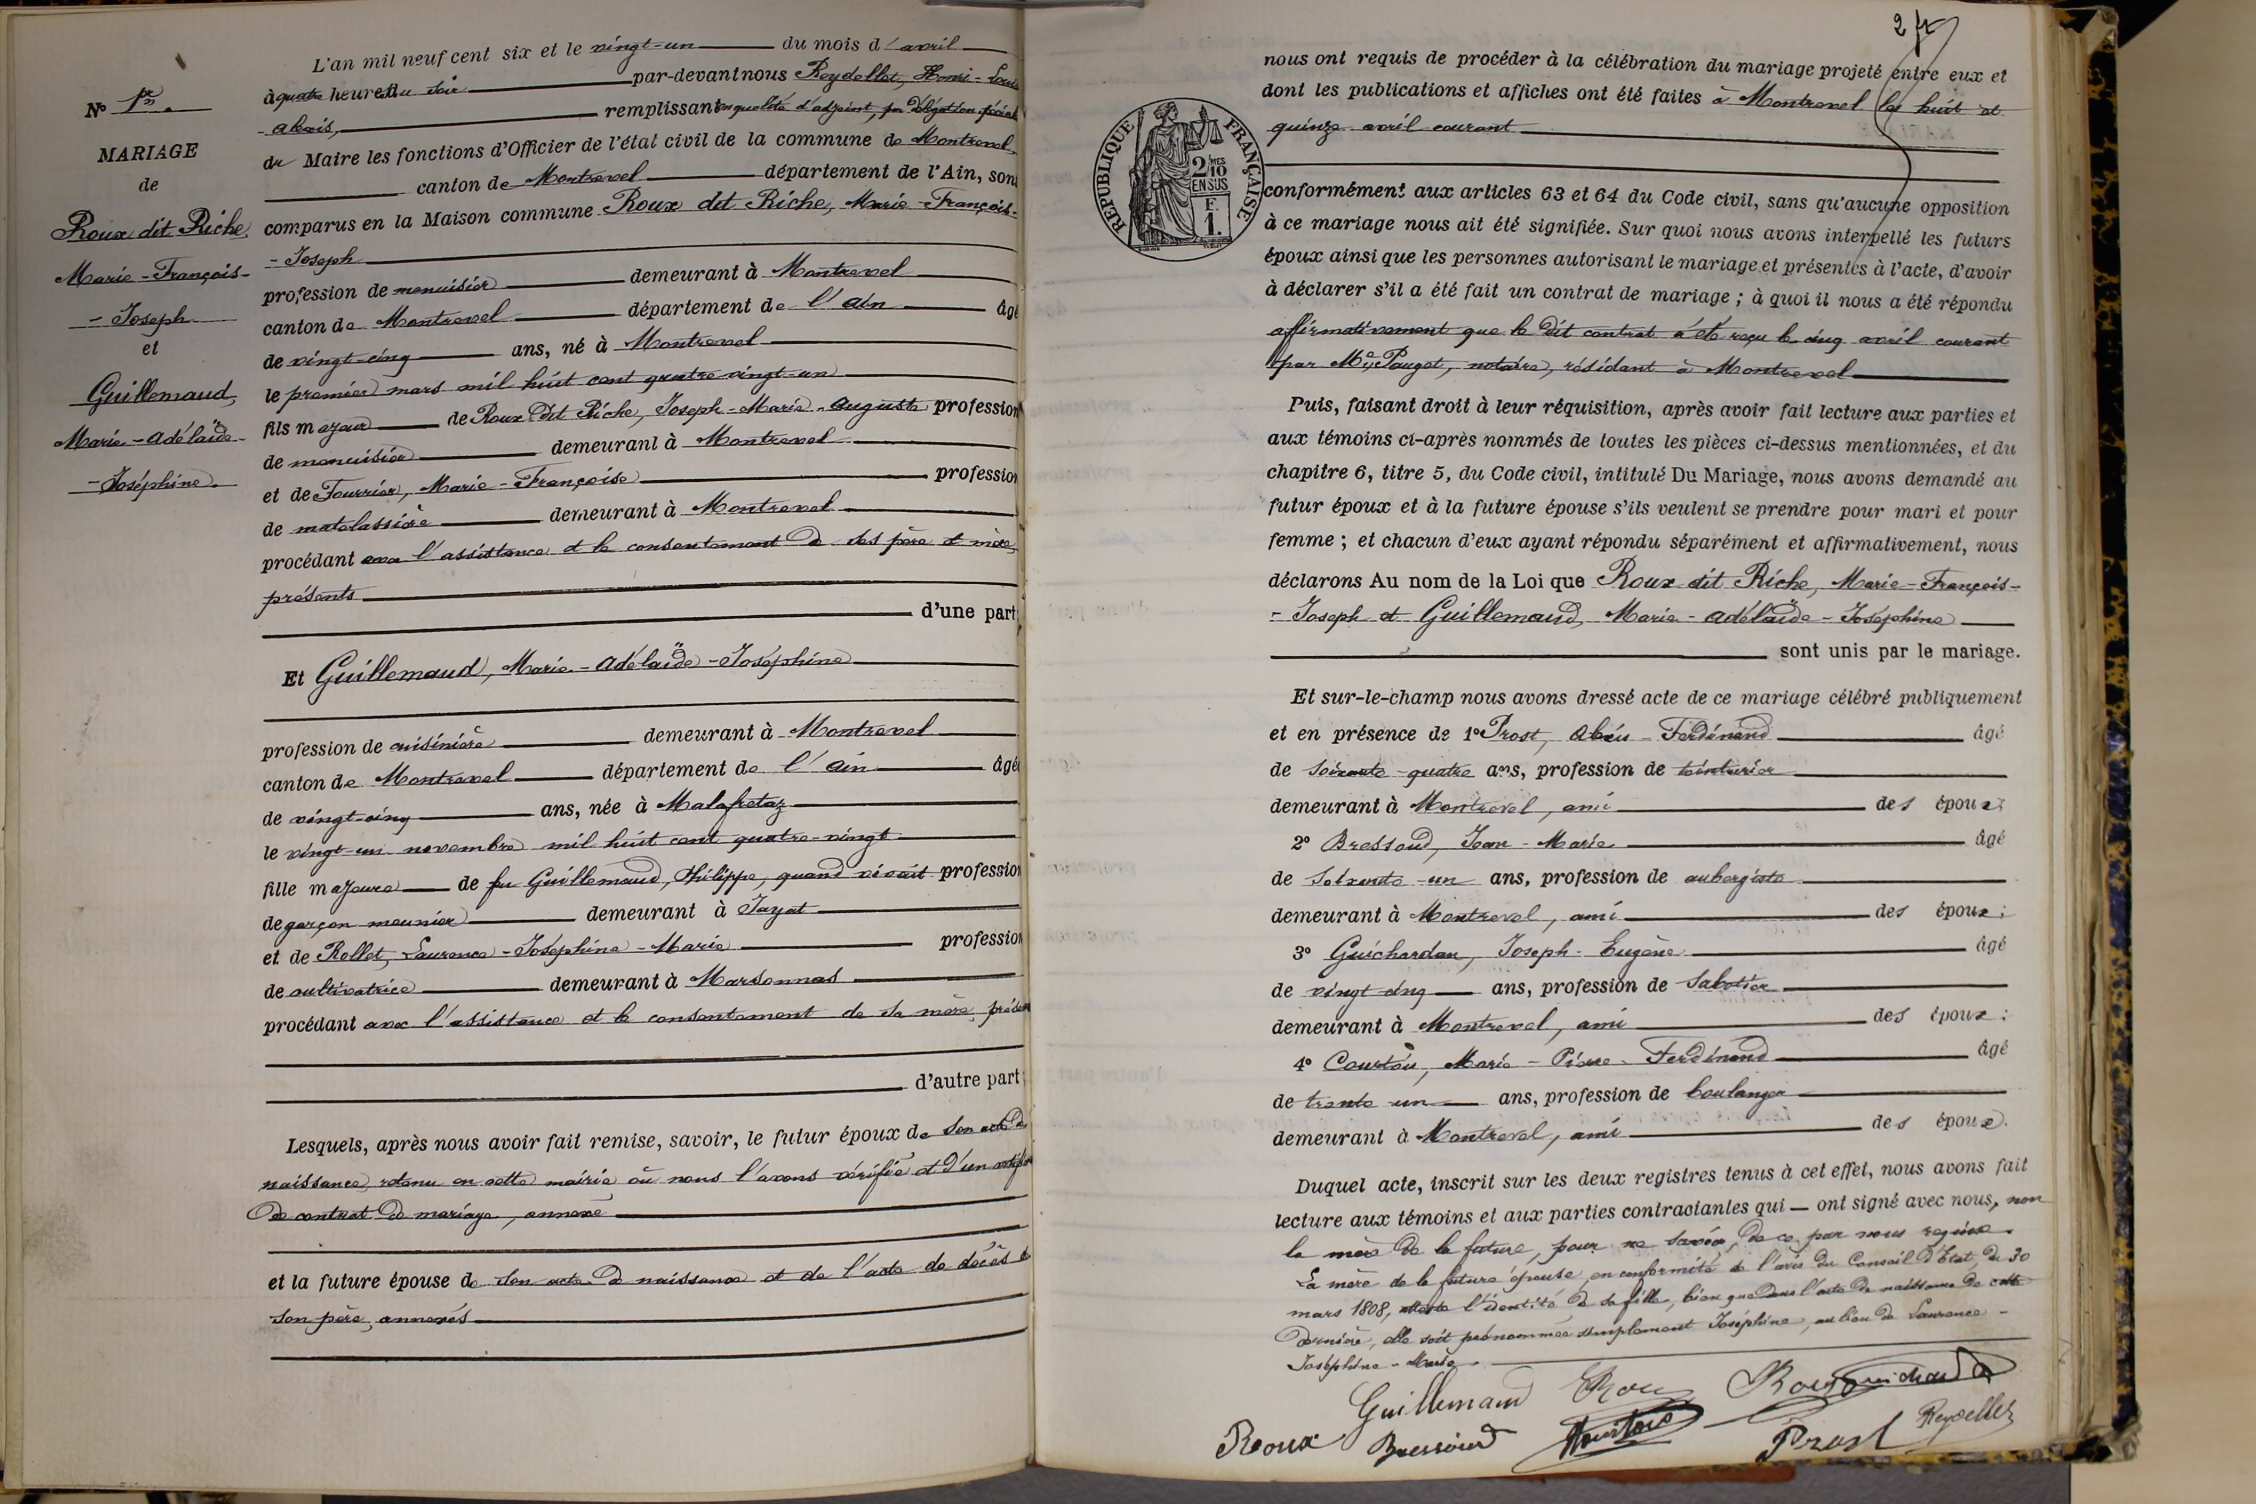 N° 1er.
MARIAGE
de
Roux dit Riche
Marie-François-
-Joseph
et
Guillemaud,
Marie-Adélaïde-
-Joséphine.
L'an mil neuf cent six et le vingt-un du mois d'avril
à quatre heures du soir par-devant nous Reydellet, Henri-Louis
-Alexis, remplissant en qualité d'adjoint, par délégation spéciale
du Maire les fonctions d'Officier de l'état civil de la commune de Montrevel,
canton de Montrevel département de l'Ain, sont
comparus en la Maison commune Roux dit Riche, Marie-François-
-Joseph
profession de menuisier demeurant à Montrevel
canton de Montrevel département de l'Ain âgé
de vingt-cinq ans, né à Montrevel
le premier mars mil huit cent quatre vingt-un
fils majeur de Roux dit Riche, Joseph-Marie-Auguste profession
de menuisier demeurant à Montrevel
et de Fourrier, Marie-Françoise profession
de matelassière demeurant à Montrevel
procédant avec l'assistance et le consentement de ses père et mère,
présents
d'une part;
Et Guillemaud, Marie-Adélaïde-Joséphine
profession de cuisinière demeurant à Montrevel
canton de Montrevel département de l'Ain âgée
de vingt-cinq ans, née à Malafretaz
le vingt-un novembre mil huit cent quatre-vingt
fille majeure de feu Guillemaud, Philippe, quand vivait profession
de garçon meunier demeurant à Jayat
et de Rollet, Laurence-Joséphine-Marie profession
de cultivatrice demeurant à Marsonnas
procédant avec l'assistance et le consentement de sa mère, présente
d'autre part;
Lesquels, après nous avoir fait remise, savoir, le futur époux de son acte de
naissance, retenu en cette mairie où nous l'avons vérifié et d'un certificat
de contrat de mariage, annexé
et la future épouse de son acte de naissance et de l'acte de décès de
son père, annexés
nous ont requis de procéder à la célébration du mariage projeté entre eux et
dont les publications et affiches ont été faites à Montrevel les huit et
quinze avril courant
RÉPUBLIQUE FRANÇAISE
2/10 MES
EN SUS
F.
1.
conformément aux articles 63 et 64 du Code civil, sans qu'aucune opposition
à ce mariage nous ait été signifiée. Sur quoi nous avons interpellé les futurs
époux ainsi que les personnes autorisant le mariage et présentes à l'acte, d'avoir
à déclarer s'il a été fait un contrat de mariage; à quoi il nous a été répondu
affirmativement que le dit contrat a été reçu le cinq avril courant
par Me Pauget, notaire, résidant à Montrevel
Puis, faisant droit à leur réquisition, après avoir fait lecture aux parties et
aux témoins ci-après nommés de toutes les pièces ci-dessus mentionnées, et du
chapitre 6, titre 5, du Code civil, intitulé Du Mariage, nous avons demandé au
futur époux et à la future épouse s'ils veulent se prendre pour mari et pour
femme; et chacun d'eux ayant répondu séparément et affirmativement, nous
déclarons Au nom de la Loi que Roux dit Riche, Marie-François-
-Joseph et Guillemaud, Marie-Adélaïde-Joséphine
sont unis par le mariage.
Et sur-le-champ nous avons dressé acte de ce mariage célébré publiquement
et en présence de 1° Prost, Alexis-Ferdinand âgé
de soixante-quatre ans, profession de teinturier
demeurant à Montrevel, ami des époux;
2° Bressoud, Jean-Marie âgé
de soixante-un ans, profession de aubergiste
demeurant à Montrevel, ami des époux;
3° Guichardan, Joseph-Eugène âgé
de vingt cinq ans, profession de sabotier
demeurant à Montrevel, ami des époux;
4° Courtois, Marie-Pierre-Ferdinand âgé
de trente-un ans, profession de boulanger
demeurant à Montrevel, ami des époux.
Duquel acte, inscrit sur les deux registres tenus à cet effet, nous avons fait
lecture aux témoins et aux parties contractantes qui ont signé avec nous, non
la mère de la future, pour ne savoir, de ce par nous requise.
La mère de la future épouse, en conformité de l'avis du Conseil d'Etat, du 30
mars 1808, atteste l'identité de sa fille, bien que dans l'acte de naissance de cette
dernière, elle soit prénommée simplement Joséphine, au lieu de Laurence-
Joséphine-Marie.
Guillemaud Roux
Roux Bressoud Courtois Prost Reydellet